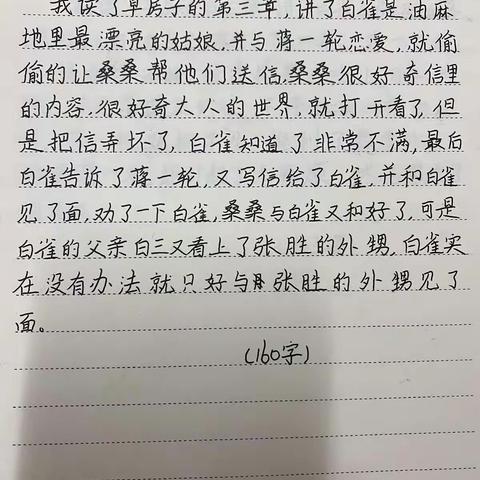 我读了草房子的第三章,讲了白雀是油麻
地里最漂亮的姑娘,并与蒋一轮恋爱,就偷
偷的让桑桑帮他们送信,桑桑很好奇信里
的内容,很好奇大人的世界,就打开看了,但
是把信弄坏了,白雀知道了非常不满,最后
白雀告诉了蒋一轮,又写信给了白雀,并和白雀
见了面,劝了一下白雀,桑桑与白雀又和好了,可是
白雀的父亲白三又看上了张胜的外甥,白雀实
在没有办法就只好与张胜的外甥见了
面。
(160字)